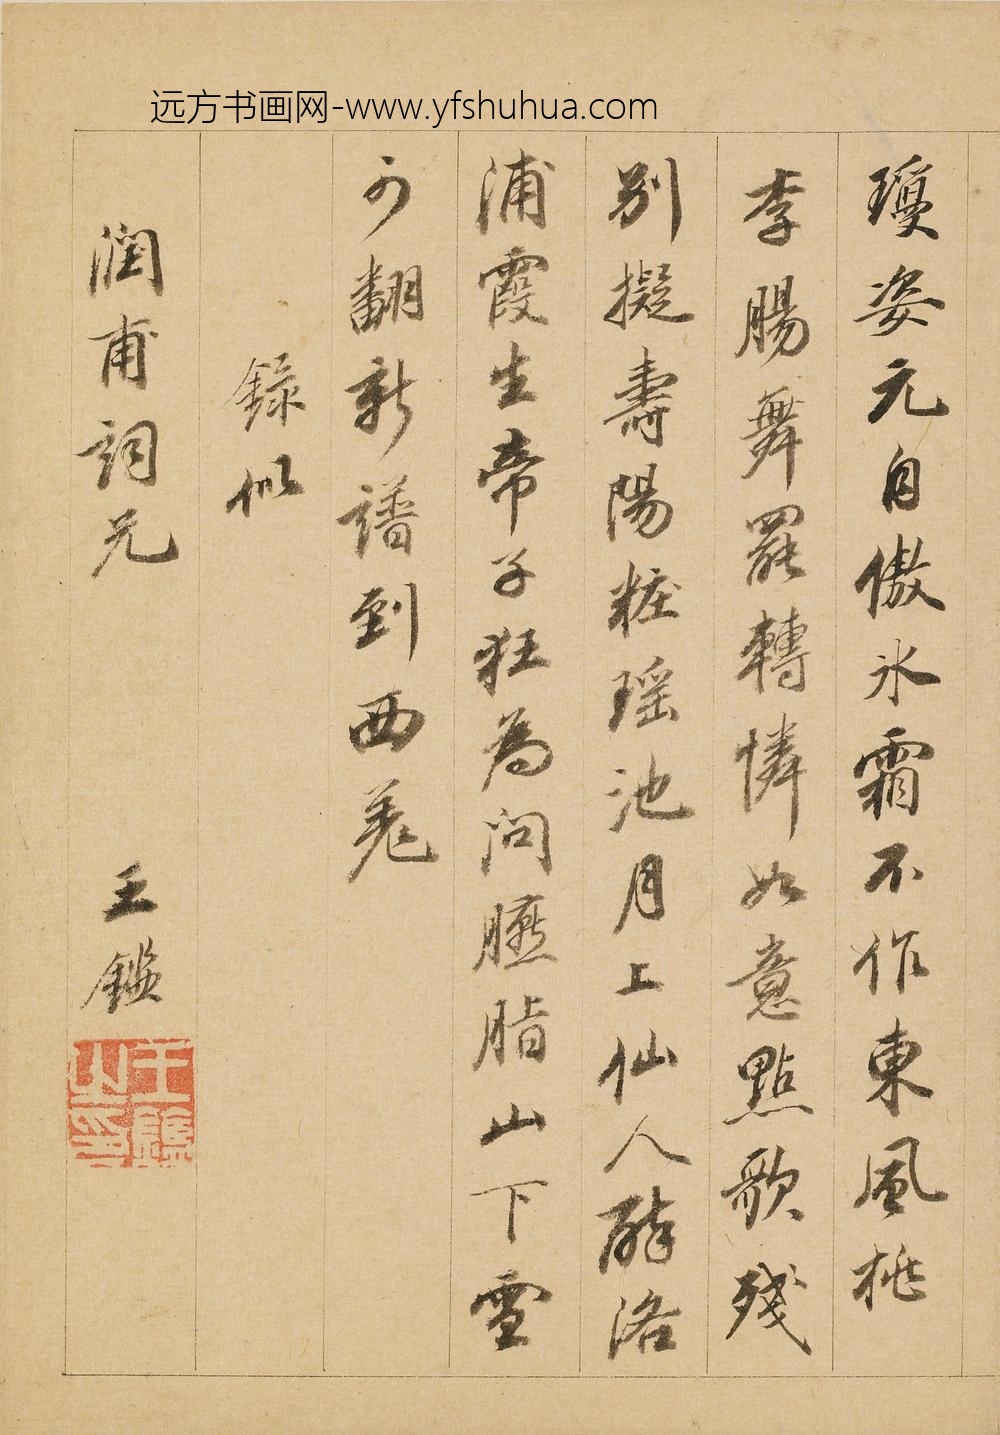 远方书画网-www.yfshuhua.com
瓊姿元自傲氷霜不作東風桃
李腸舞罷轉憐如意點歌殘
別擬壽陽粧瑶池月上仙人醉洛
浦霞生帝子狂為問臙脂山下雪
可翻新譜到西羌
錄似
潤甫詞兄
王鑑
王鑑之印